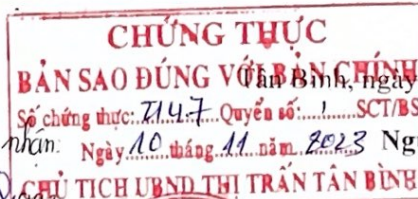 CHỨNG THỰC
BẢN SAO ĐÚNG VỚI BẢN CHÍNH
Tân Bình, ngày
Số chứng thực: 2147 Quyển số: 1 SCT/BS
nhận: Ngày 10 tháng 11 năm 2023 Ng
CHỦ TỊCH UBND THỊ TRẤN TÂN BÌNH